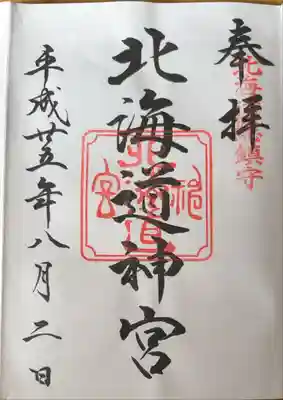 奉拝
北海道総鎮守
北海道神宮
北海道神宮
平成廿五年八月二日